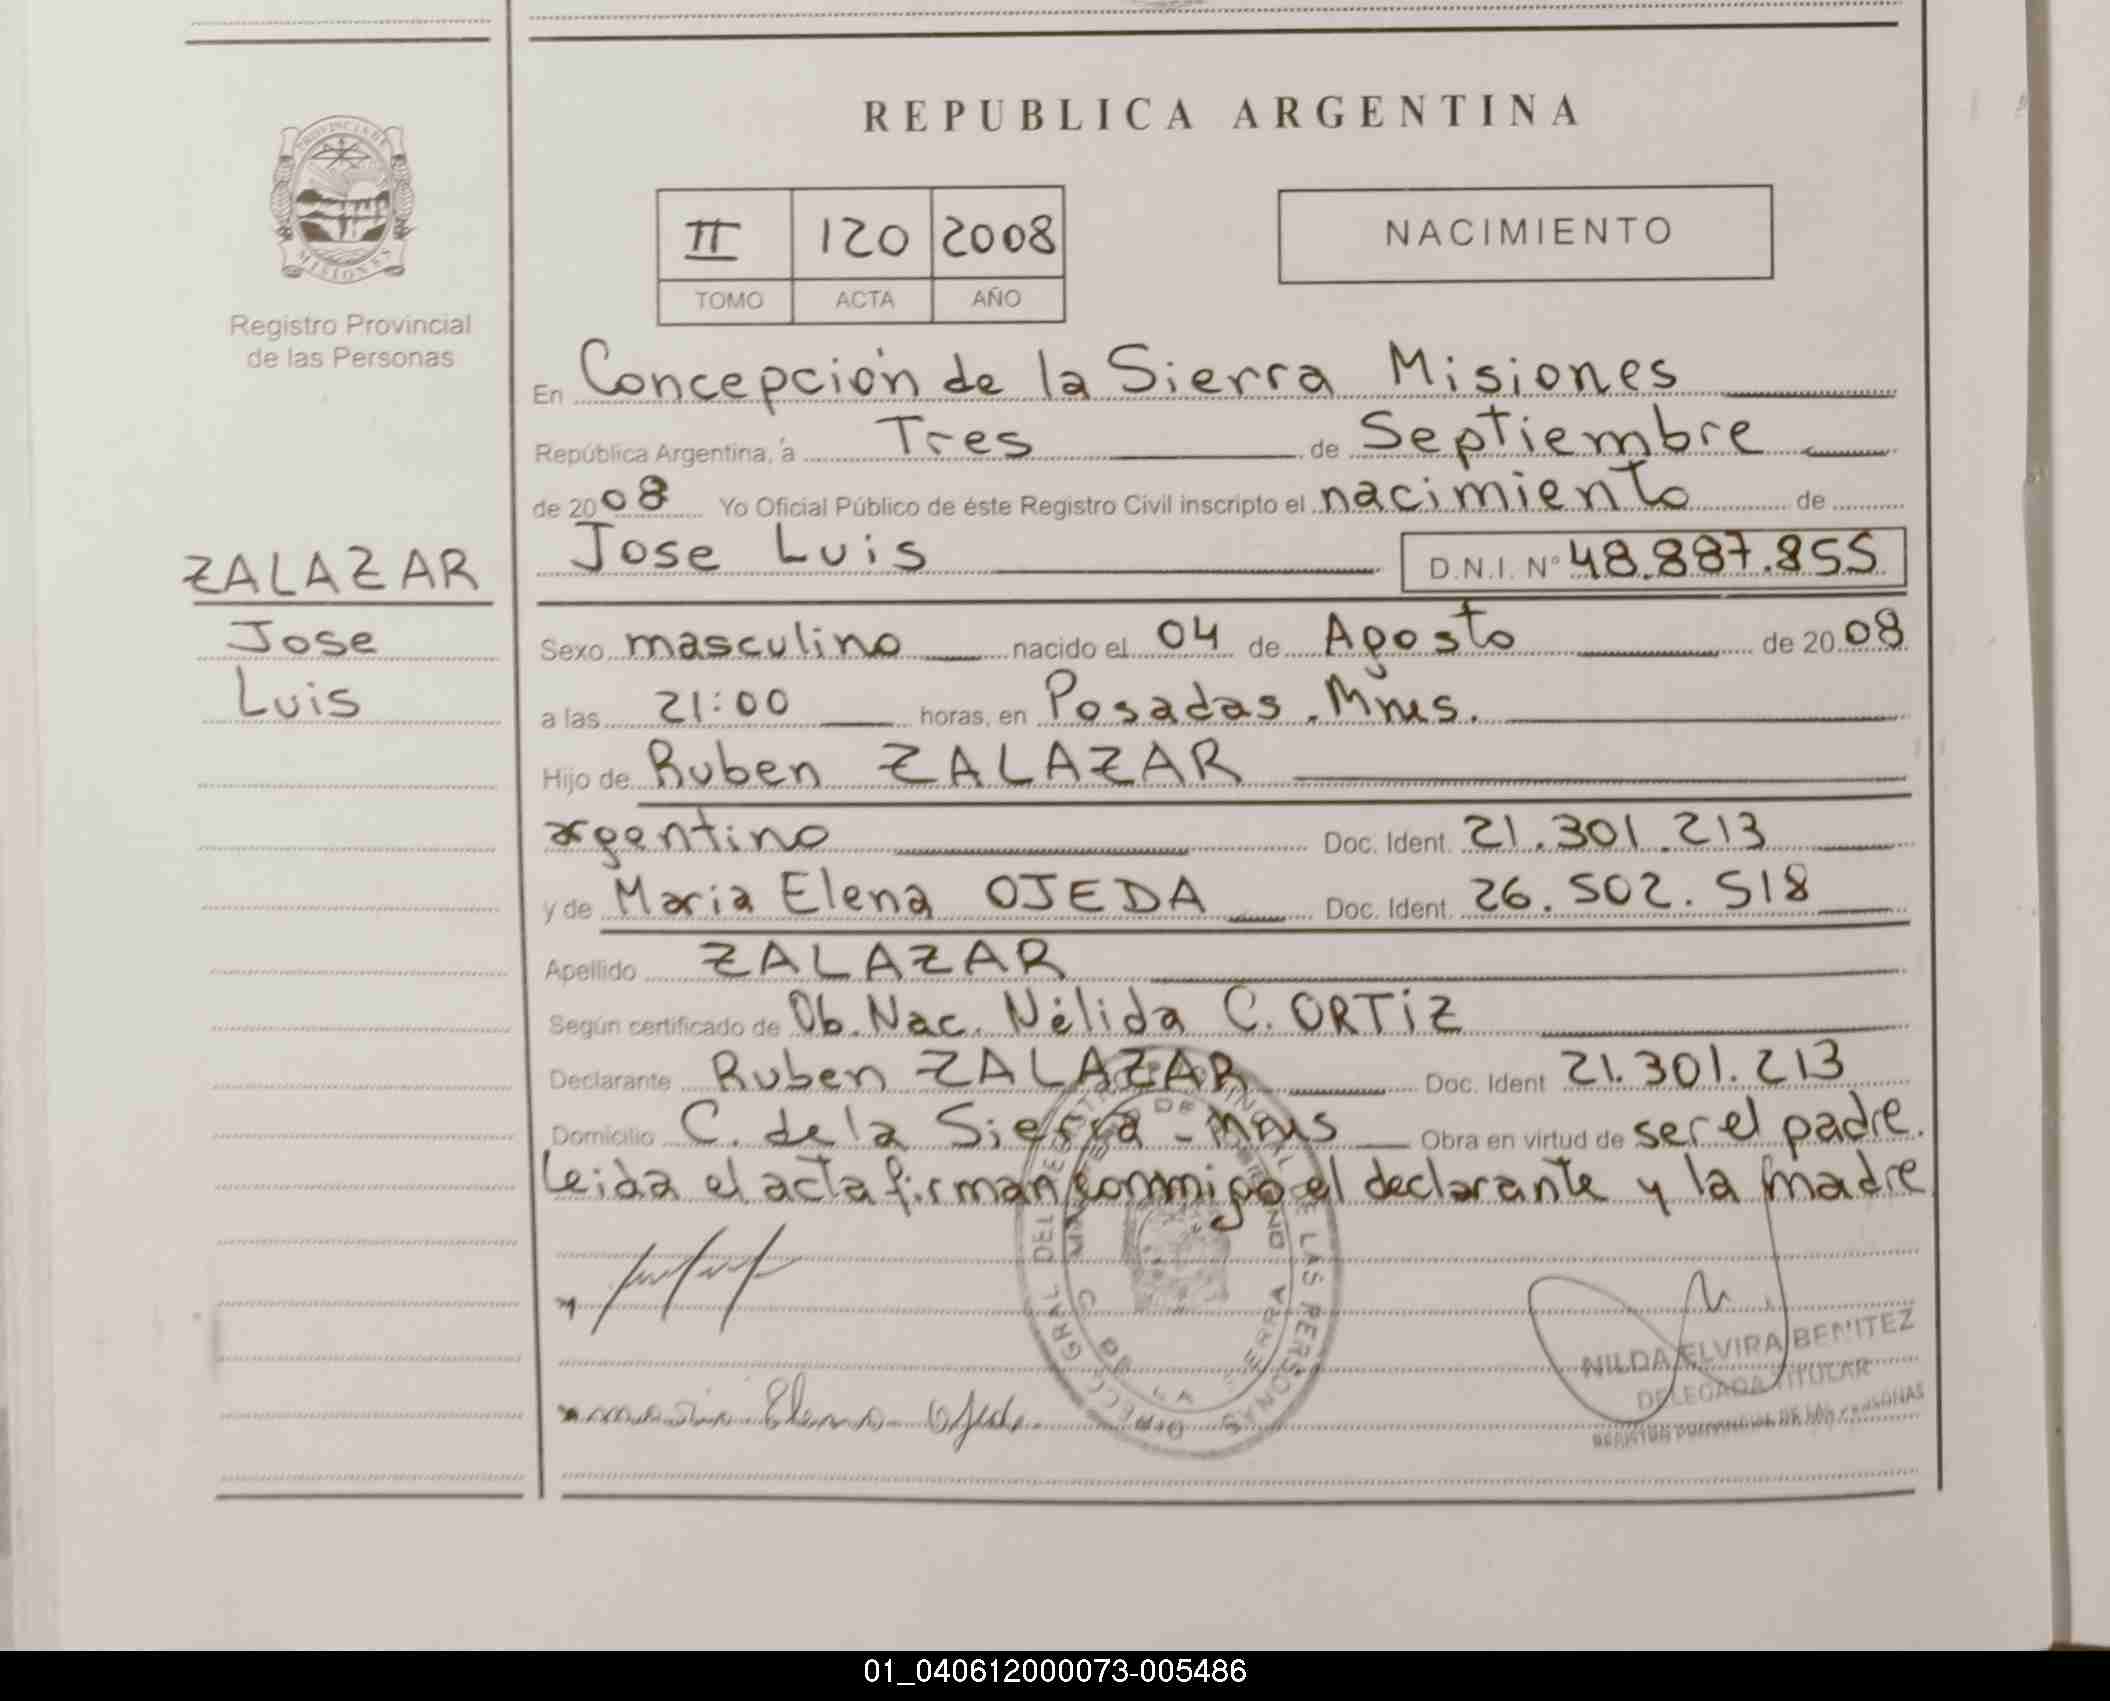 REPUBLICA ARGENTINA
PROVINCIA DE
MISIONES
Registro Provincial
de las Personas
II 120 2008
TOMO ACTA AÑO
NACIMIENTO
En Concepción de la Sierra Misiones
República Argentina, a Tres de Septiembre
de 2008 Yo Oficial Público de éste Registro Civil inscripto el nacimiento de
Jose Luis D.N.I. Nº 48.887.855
ZALAZAR
Jose
Luis
Sexo masculino nacido el 04 de Agosto de 2008
a las 21:00 horas, en Posadas. Mnes.
Hijo de Ruben ZALAZAR
argentino Doc. Ident. 21.301.213
y de Maria Elena OJEDA Doc. Ident. 26.502.518
Apellido ZALAZAR
Según certificado de Ob. Nac. Nélida C. ORTiZ
Declarante Ruben ZALAZAR Doc. Ident 21.301.213
Domicilio C. de la Sierra - Mnes Obra en virtud de ser el padre.
Leida el acta firman conmigo el declarante y la madre
Maria Elena Ojeda
NILDA ELVIRA BENITEZ
DELEGADA TITULAR
REGISTRO PROVINCIAL DE LAS PERSONAS
01_040612000073-005486